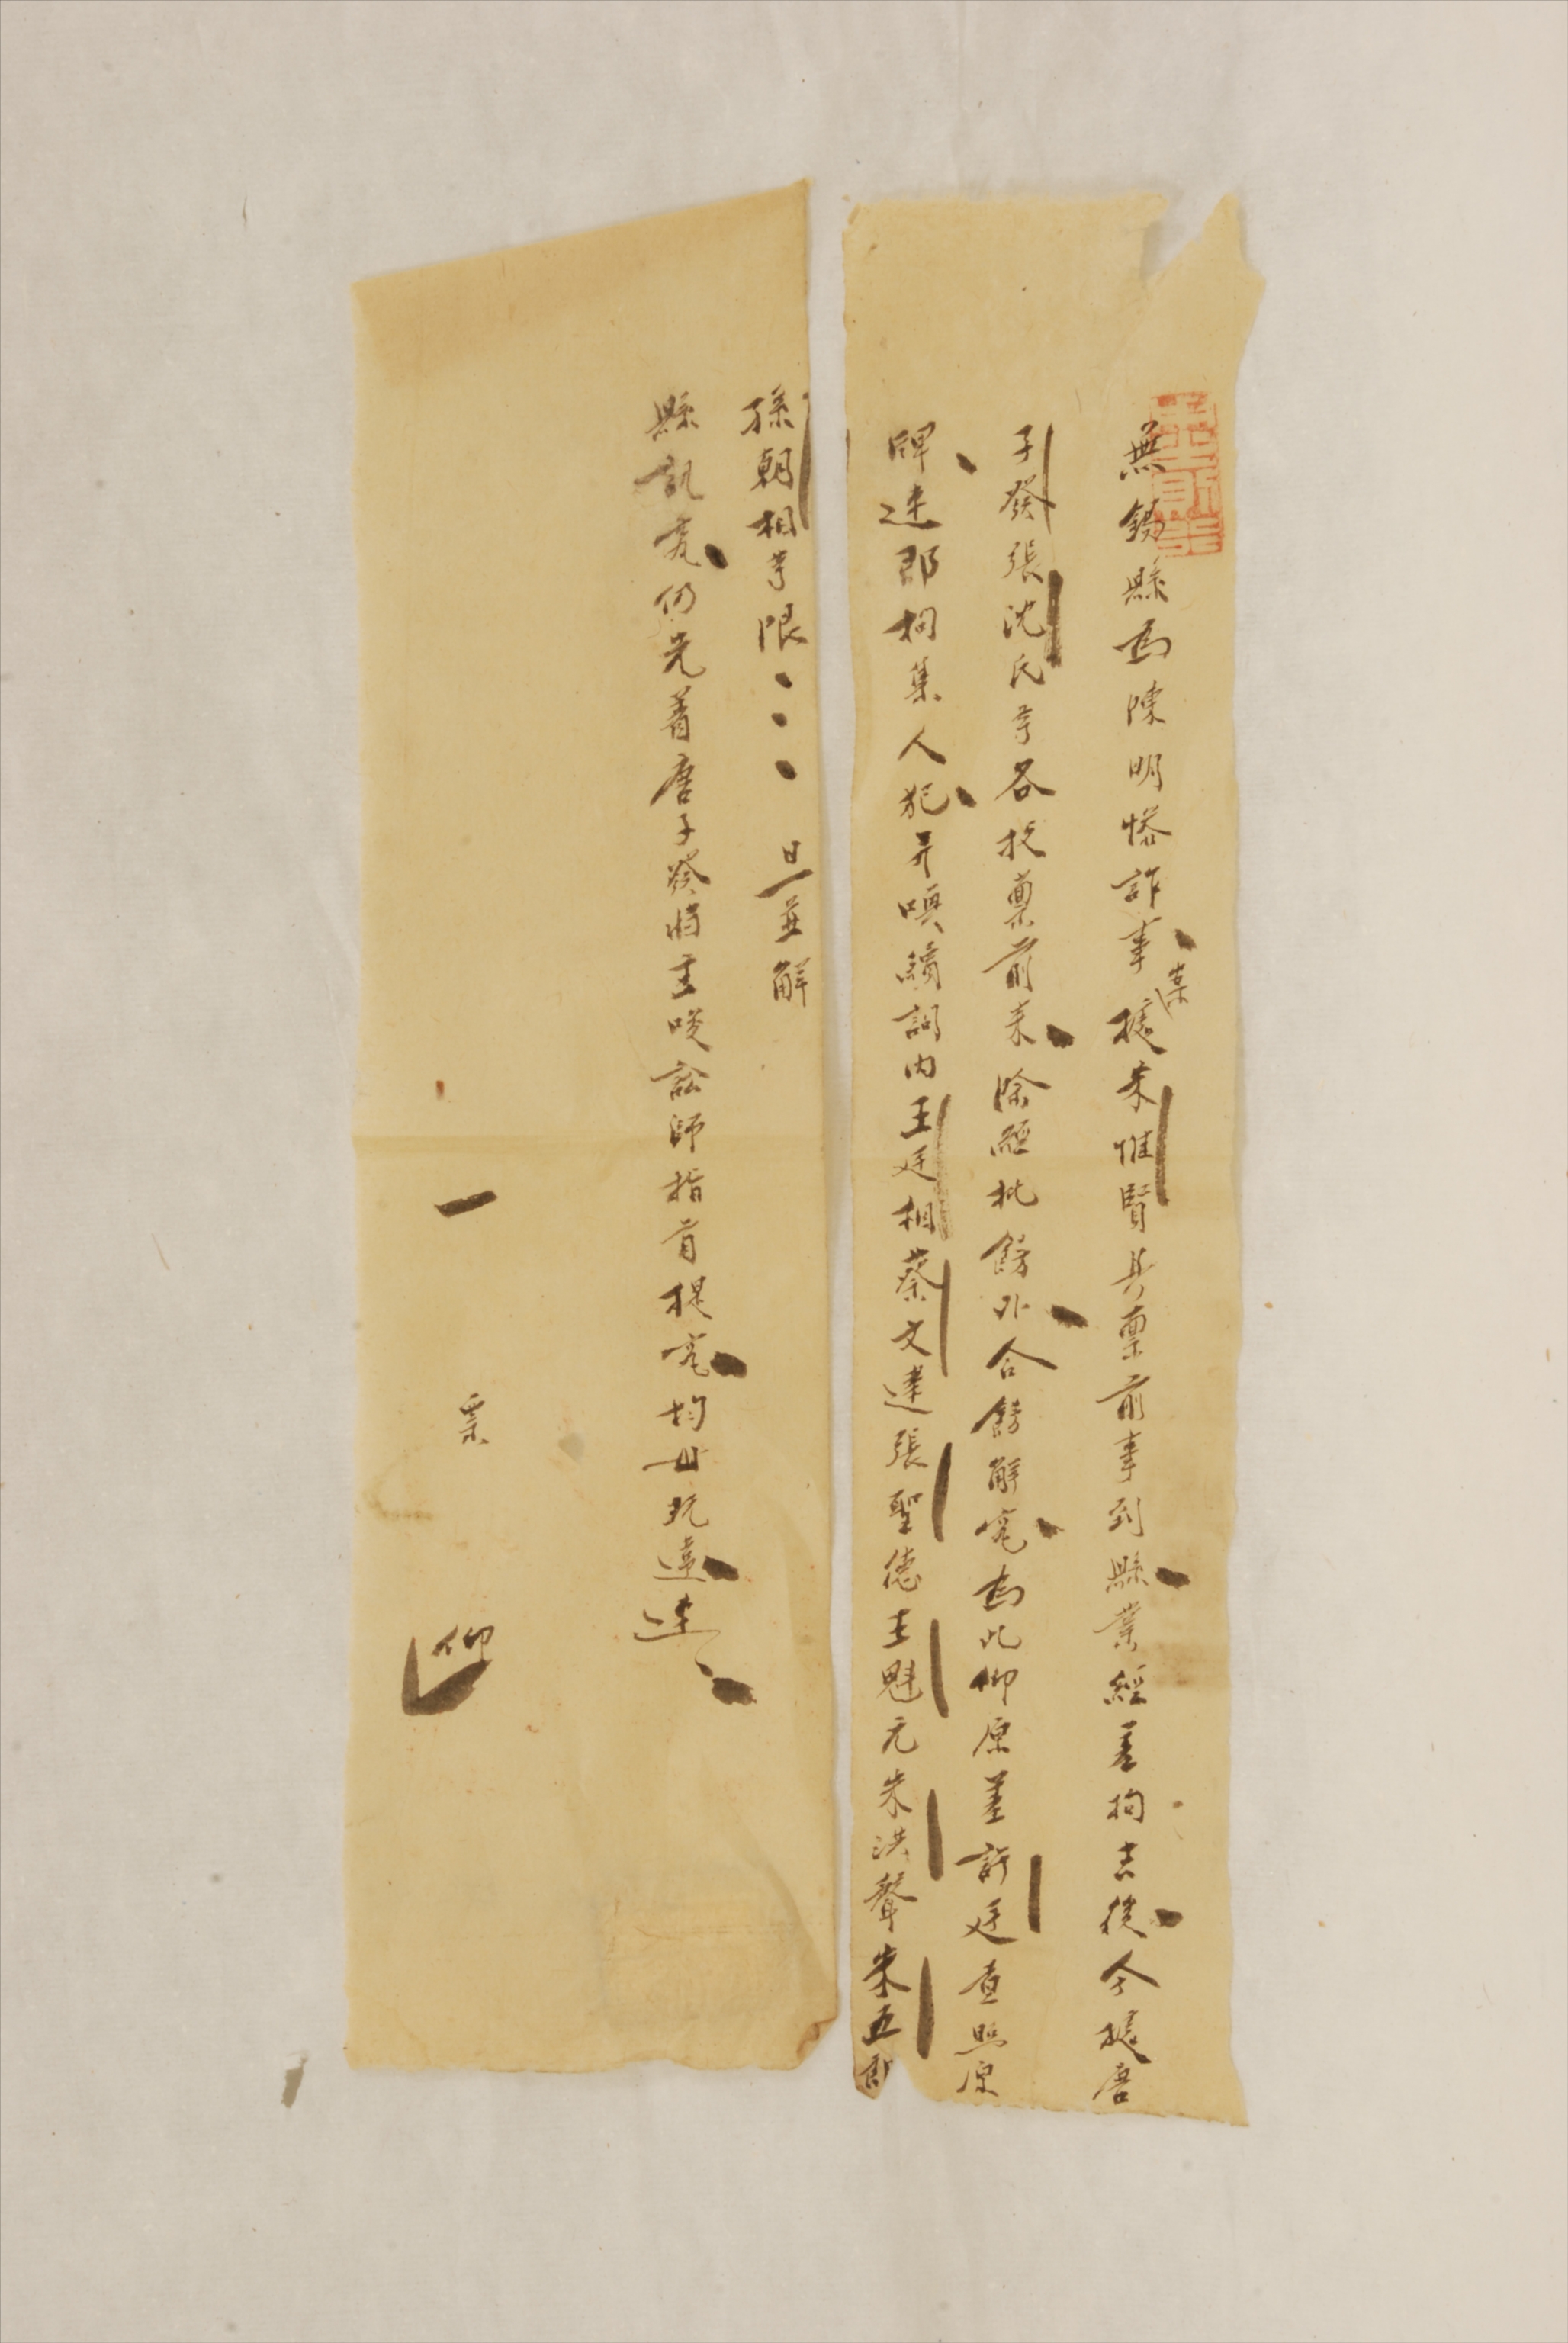 無錫縣為陳明慘詐事案據朱惟賢具稟前事到縣業經差拘去後今據唐
子癸張沈氏等各投稟前來除經批飭外合飭解究為此仰原差許廷查照原
牌速即拘集人犯并喚續詞內王廷相蔡文達張聖德王魁元朱洪聲朱五郎
孫朝相等限 日並解
縣訊究仍先着唐子癸將主唆訟師指首提究均毋玩違速速
一 票 仰